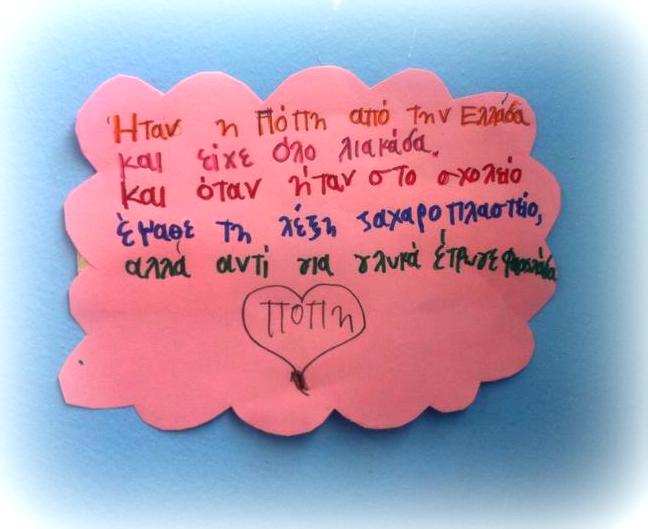 Ήταν η Πόπη από την Ελλάδα
και είχε όλο λιακάδα.
και όταν ήταν στο σχολείο
έμαθε τη λέξη ζαχαροπλαστείο,
αλλά αντί για γλυκά έτρωγε
Πόπη